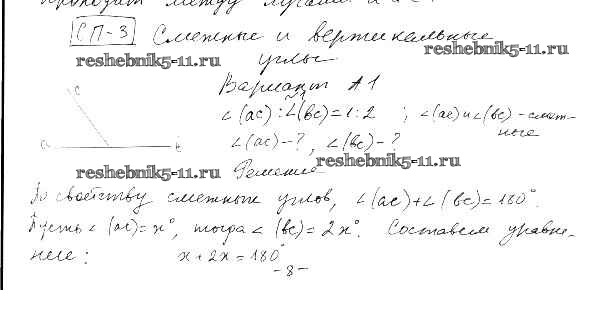 проходит между лучами a и c.
СП-3 Смежные и вертикальные
reshebnik5-11.ru reshebnik5-11.ru
углы.
Вариант А1
c
∠(ac):∠(bc)=1:2 ; ∠(ac) и ∠(bc) - смеж-
ные
∠(ac)-?, ∠(bc)-?
a b
reshebnik5-11.ru Решение reshebnik5-11.ru
По свойству смежных углов, ∠(ac)+∠(bc)=180°.
Пусть ∠(ac)=x°, тогда ∠(bc)=2x°. Составим уравне-
ние: x+2x=180°
-8-